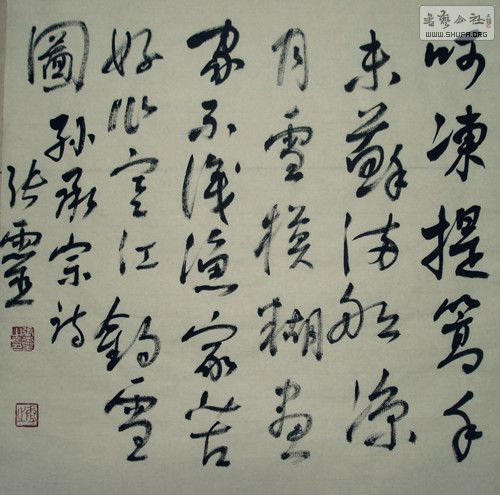 呵凍提篙手
未蘇滿船涼
月雪模糊畫
家不識漁家苦
好作寒江釣雪
圖孫承宗詩
張靈
書藝公社
WWW.SHUFA.ORG